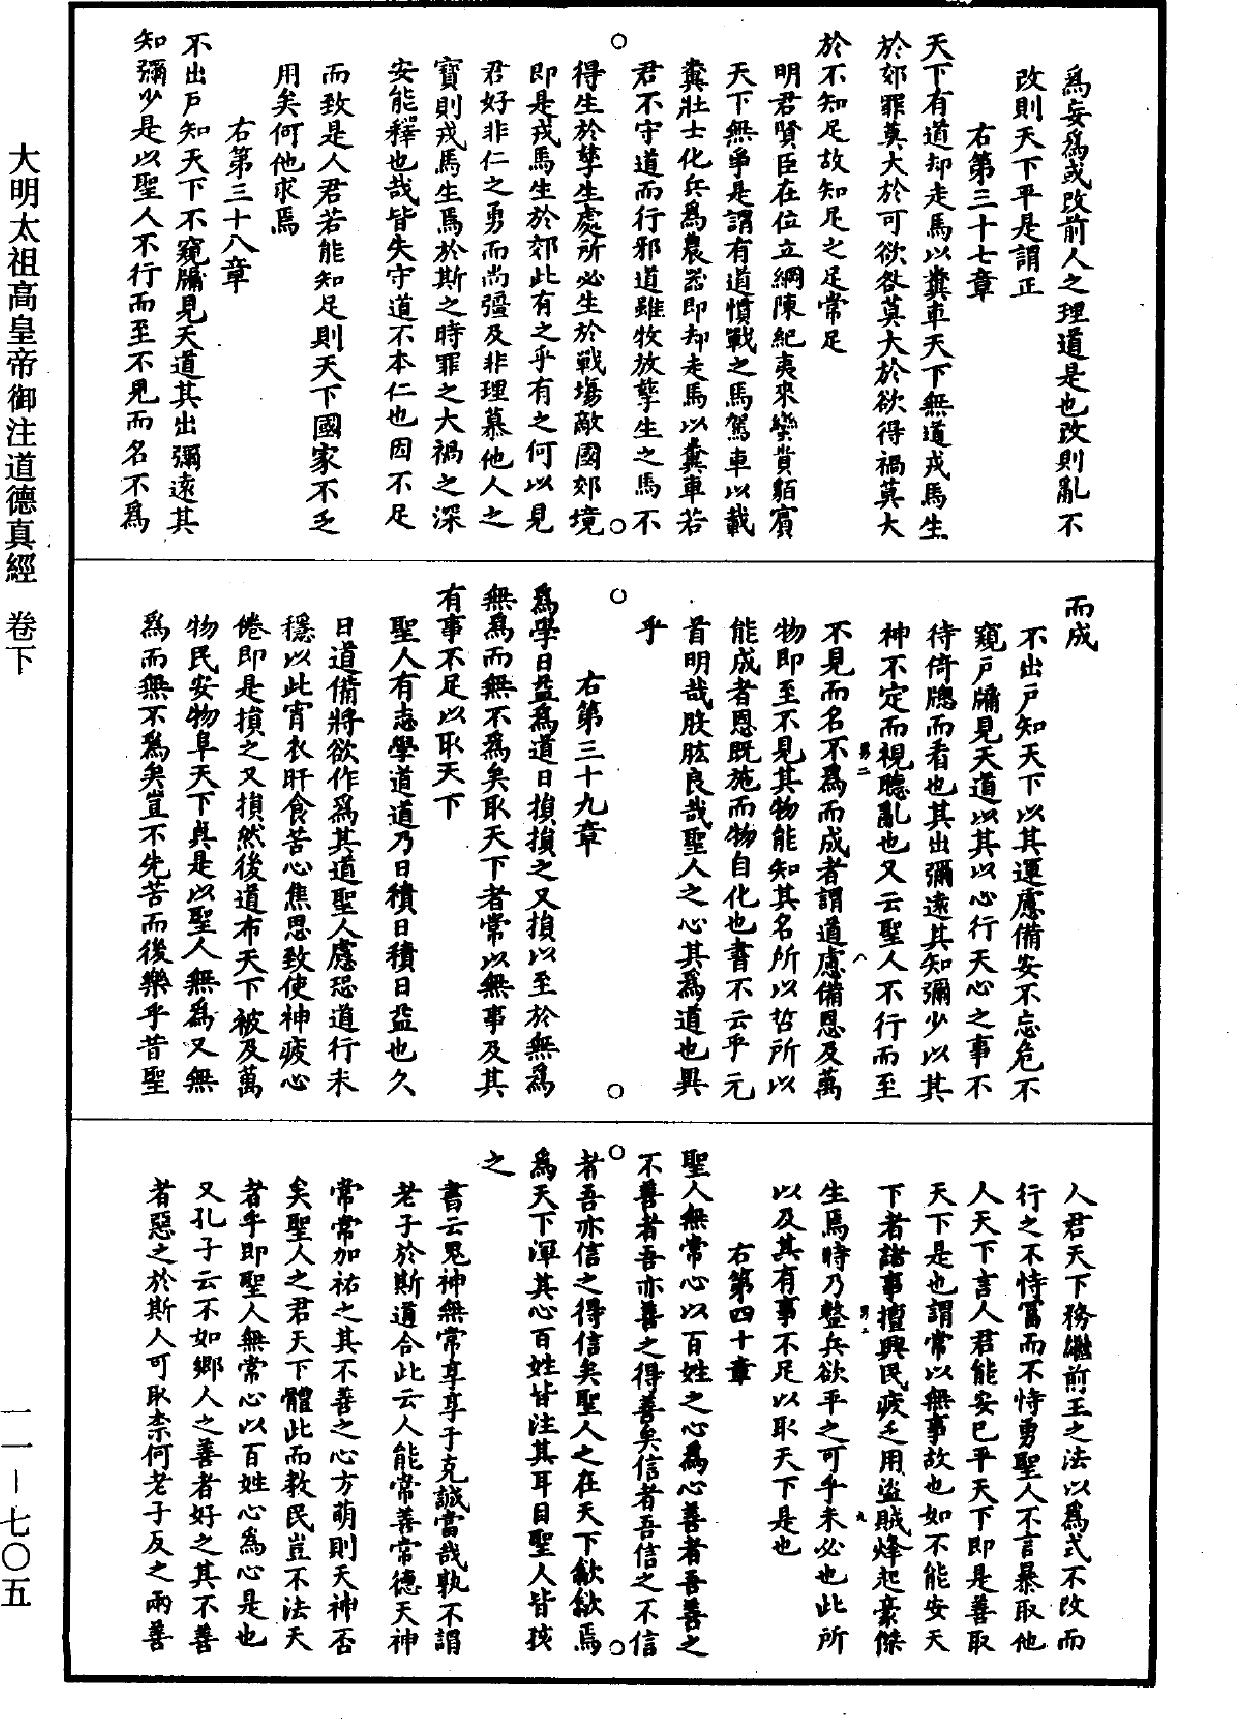 爲妄爲或改前人之理道是也改則亂不
改則天下平是謂正
右第三十七章
天下有道却走馬以糞車天下無道戎馬生
於郊罪莫大於可欲咎莫大於欲得禍莫大
於不知足故知足之足常足
明君賢臣在位立綱陳紀夷來蠻貴貊賓
天下無爭是謂有道慣戰之馬駕車以載
糞壯士化兵爲農器即却走馬以糞車若
君不守道而行邪道雖牧放孳生之馬不
得生於孳生處所必生於戰場敵國郊境
即是戎馬生於郊此有之乎有之何以見
君好非仁之勇而尚彊及非理慕他人之
寶則戎馬生焉於斯之時罪之大禍之深
安能釋也哉皆失守道不本仁也因不足
而致是人君若能知足則天下國家不乏
用矣何他求焉
右第三十八章
不出戶知天下不窺牖見天道其出彌遠其
知彌少是以聖人不行而至不見而名不爲
而成
不出戶知天下以其運慮備安不忘危不
窺戶牖見天道以其以心行天心之事不
待倚牕而看也其出彌遠其知彌少以其
神不定而視聽亂也又云聖人不行而至
不見而名不爲而成者謂道慮備恩及萬
物即至不見其物能知其名所以哲所以
能成者恩既施而物自化也書不云乎元
首明哉股肱良哉聖人之心其爲道也異
乎
右第三十九章
爲學日益爲道日損損之又損以至於無爲
無爲而無不爲矣取天下者常以無事及其
有事不足以取天下
聖人有志學道道乃日積日積日益也久
日道備將欲作爲其道聖人慮恐道行未
穩以此宵衣旰食苦心焦思致使神疲心
倦即是損之又損然後道布天下被及萬
物民安物阜天下貞是以聖人無爲又無
爲而無不爲矣豈不先苦而後樂乎昔聖
人君天下務繼前王之法以爲式不改而
行之不恃富而不恃勇聖人不言暴取他
人天下言人君能安已平天下即是善取
天下是也謂常以無事故也如不能安天
下者諸事擅興民疲乏用盜賊烽起豪傑
生焉時乃整兵欲平之可乎未必也此所
以及其有事不足以取天下是也
右第四十章
聖人無常心以百姓之心爲心善者吾善之
不善者吾亦善之得善矣信者吾信之不信
者吾亦信之得信矣聖人之在天下歙歙焉
爲天下渾其心百姓皆注其耳目聖人皆孩
之
書云鬼神無常享享于克誠當哉孰不謂
老子於斯道合此云人能常善常德天神
常常加祐之其不善之心方萌則天神否
矣聖人之君天下體此而教民豈不法天
者乎即聖人無常心以百姓心爲心是也
又孔子云不如鄉人之善者好之其不善
者惡之於斯人可取柰何老子反之兩善
大明太祖高皇帝御注道德真經 卷下
一一—七〇五